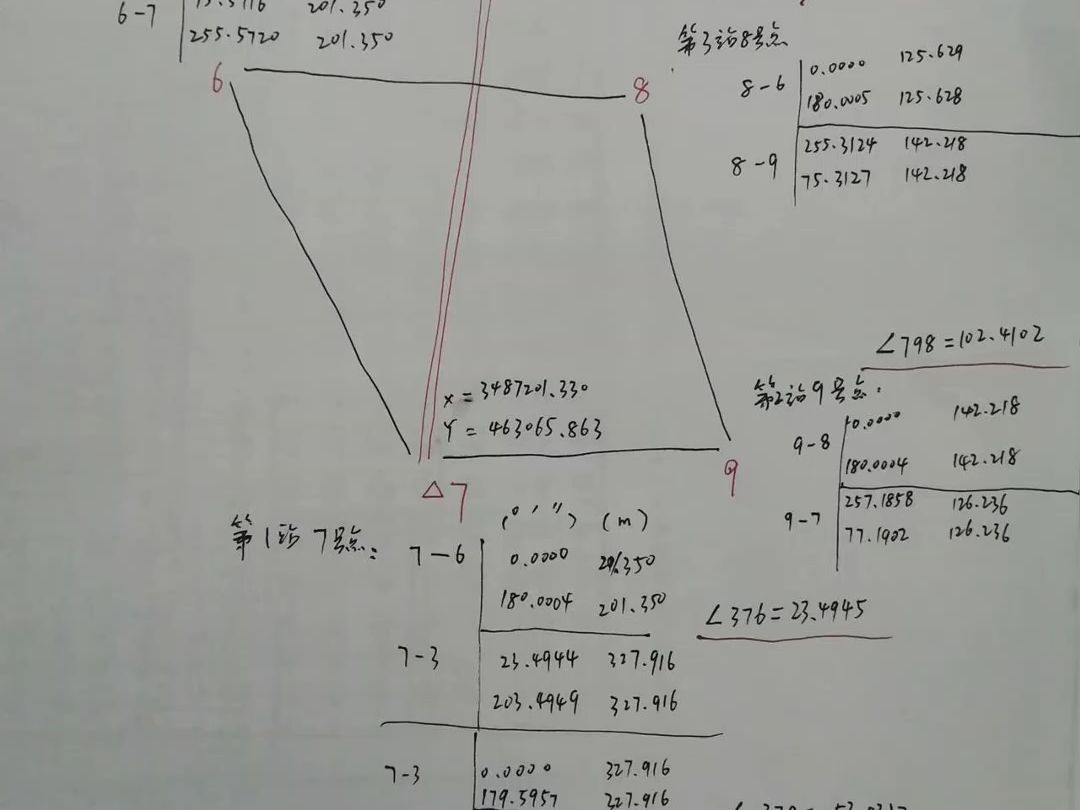 201.350
6-7
255.5720 201.350
6
8
第3站8号点
8-6
0.0000 125.629
180.0005 125.628
8-9
255.3124 142.218
75.3127 142.218
∠798=102.4102
第2站9号点:
9-8
0.0000 142.218
180.0004 142.218
9-7
257.1858 126.236
77.1902 126.236
x=3487201.330
Y=463065.863
△7
9
第1站7号点:
(° ′ ″) (m)
7-6
0.0000 201.350
180.0004 201.350
7-3
23.4944 327.916
203.4949 327.916
∠376=23.4945
7-3
0.0000 327.916
179.5957 327.916